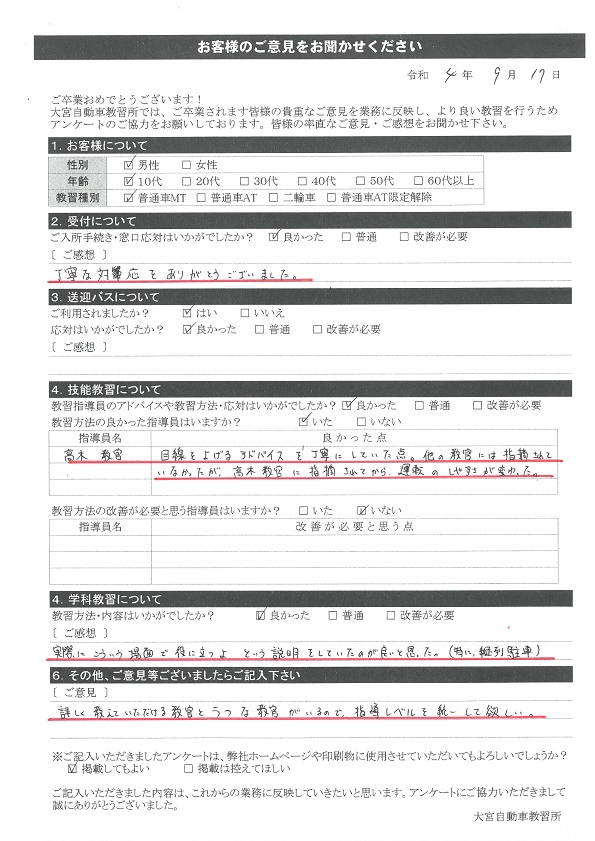 お客様のご意見をお聞かせください
令和 4 年 9 月 17 日
ご卒業おめでとうございます！
大宮自動車教習所では、ご卒業されます皆様の貴重なご意見を業務に反映し、より良い教習を行うため
アンケートのご協力をお願いしております。皆様の率直なご意見・ご感想をお聞かせ下さい。
1. お客様について
性別 ☑男性 □女性
年齢 ☑10代 □20代 □30代 □40代 □50代 □60代以上
教習種別 ☑普通車MT □普通車AT □二輪車 □普通車AT限定解除
2. 受付について
ご入所手続き・窓口応対はいかがでしたか？ ☑良かった □普通 □改善が必要
〔 ご感想 〕
丁寧な対応をありがとうございました。
3. 送迎バスについて
ご利用されましたか？ ☑はい □いいえ
応対はいかがでしたか？ ☑良かった □普通 □改善が必要
〔 ご感想 〕
4. 技能教習について
教習指導員のアドバイスや教習方法・応対はいかがでしたか？ ☑良かった □普通 □改善が必要
教習方法の良かった指導員はいますか？ ☑いた □いない
指導員名 良かった点
高木 教官 目線を上げるアドバイスを丁寧にしていた点。他の教官には指摘されて
いなかったが、高木教官に指摘されてから、運転のしやすさが変わった。
教習方法の改善が必要と思う指導員はいますか？ □いた ☑いない
指導員名 改善が必要と思う点
4. 学科教習について
教習方法・内容はいかがでしたか？ ☑良かった □普通 □改善が必要
〔 ご感想 〕
実際にこういう場面で役に立つよ という説明をしていたのが良いと思った。(特に、縦列駐車)
6. その他、ご意見等ございましたらご記入下さい
〔 ご意見 〕
詳しく教えていただける教官とうつな教官がいるので、指導レベルを統一して欲しい。
※ご記入いただきましたアンケートは、弊社ホームページや印刷物に使用させていただいてもよろしいでしょうか？
☑掲載してもよい □掲載は控えてほしい
ご記入いただきました内容は、これからの業務に反映していきたいと思います。アンケートにご協力いただきまして
誠にありがとうございました。
大宮自動車教習所